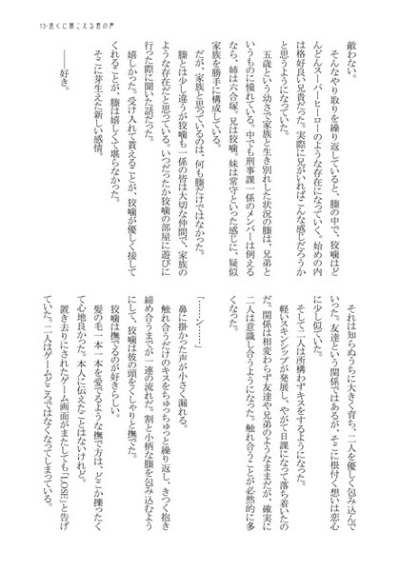 13・遠くに聞こえる君の声
敵わない。
そんなやり取りを繰り返していると、縢の中で、狡噛はど
んどんスーパーヒーローのような存在になっていく。始めの内
は格好良い兄貴だった。実際に兄がいればこんな感じだろうか
と思うようになっていた。
五歳という幼さで家族と生き別れした状況の縢は、兄弟と
いうものに憧れている。中でも刑事課一係のメンバーは例える
なら、姉は六合塚、兄は狡噛、妹は常守といった感じに、疑似
家族を勝手に構成している。
だが、家族と思っているのは、何も縢だけではなかった。
縢とは少し違うが狡噛も一係の皆は大切な仲間で、家族の
ような存在だと思っている。いつだったか狡噛の部屋に遊びに
行った際に聞いた話だった。
嬉しかった。受け入れて貰えることが、狡噛が優しく接して
くれることが、縢は嬉しくて堪らなかった。
そこに芽生えた新しい感情。
――好き。
それは知らぬうちに大きく育ち、二人を優しく包み込んで
いった。友達という関係ではあるが、そこに根付く想いは恋心
に少し似ていた。
そして二人は所構わずキスをするようになった。
軽いスキンシップが発展し、やがて日課になって落ち着いたの
だ。関係は相変わらず友達や兄弟のようなままだが、確実に
二人は意識し合うようになった。触れ合うことが必然的に多
くなった。
「……ン……」
鼻に掛かった声が小さく漏れる。
触れ合うだけのキスをちゅっちゅっと繰り返し、きつく抱き
締め合うまでが一連の流れだ。割と小柄な縢を包み込むよう
にして、狡噛は彼の頭をくしゃりと撫でた。
狡噛は撫でるのが好きらしい。
髪の毛一本一本を愛でるような撫で方は、どこか擽ったく
て心地良かった。本人に伝えたことはないけれど。
置き去りにされたゲーム画面がまたしても「LOSE」と告げ
ていた。二人はゲームどころではなくなってしまっている。